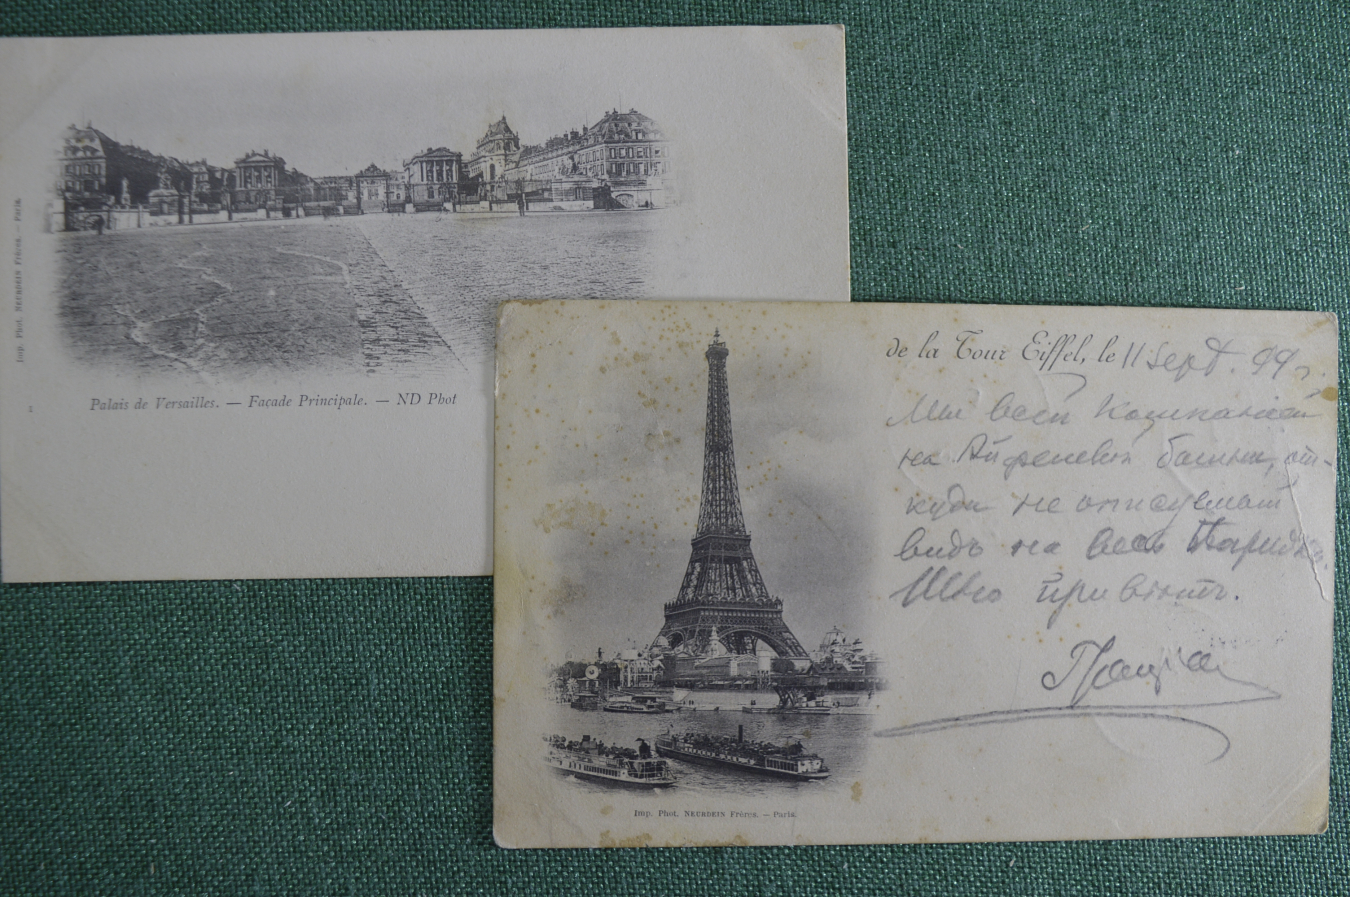 Imp. Phot. NEURDEIN Frères. — Paris.
Palais de Versailles. — Façade Principale. — ND Phot
de la Tour Eiffel, le 11 Sept. 99
Мы всей Компаніей
на Айфелевой башни, от-
куда не описуемый
видъ на весь Парижъ.
Шлю привѣтъ.
Imp. Phot. NEURDEIN Frères. — Paris.